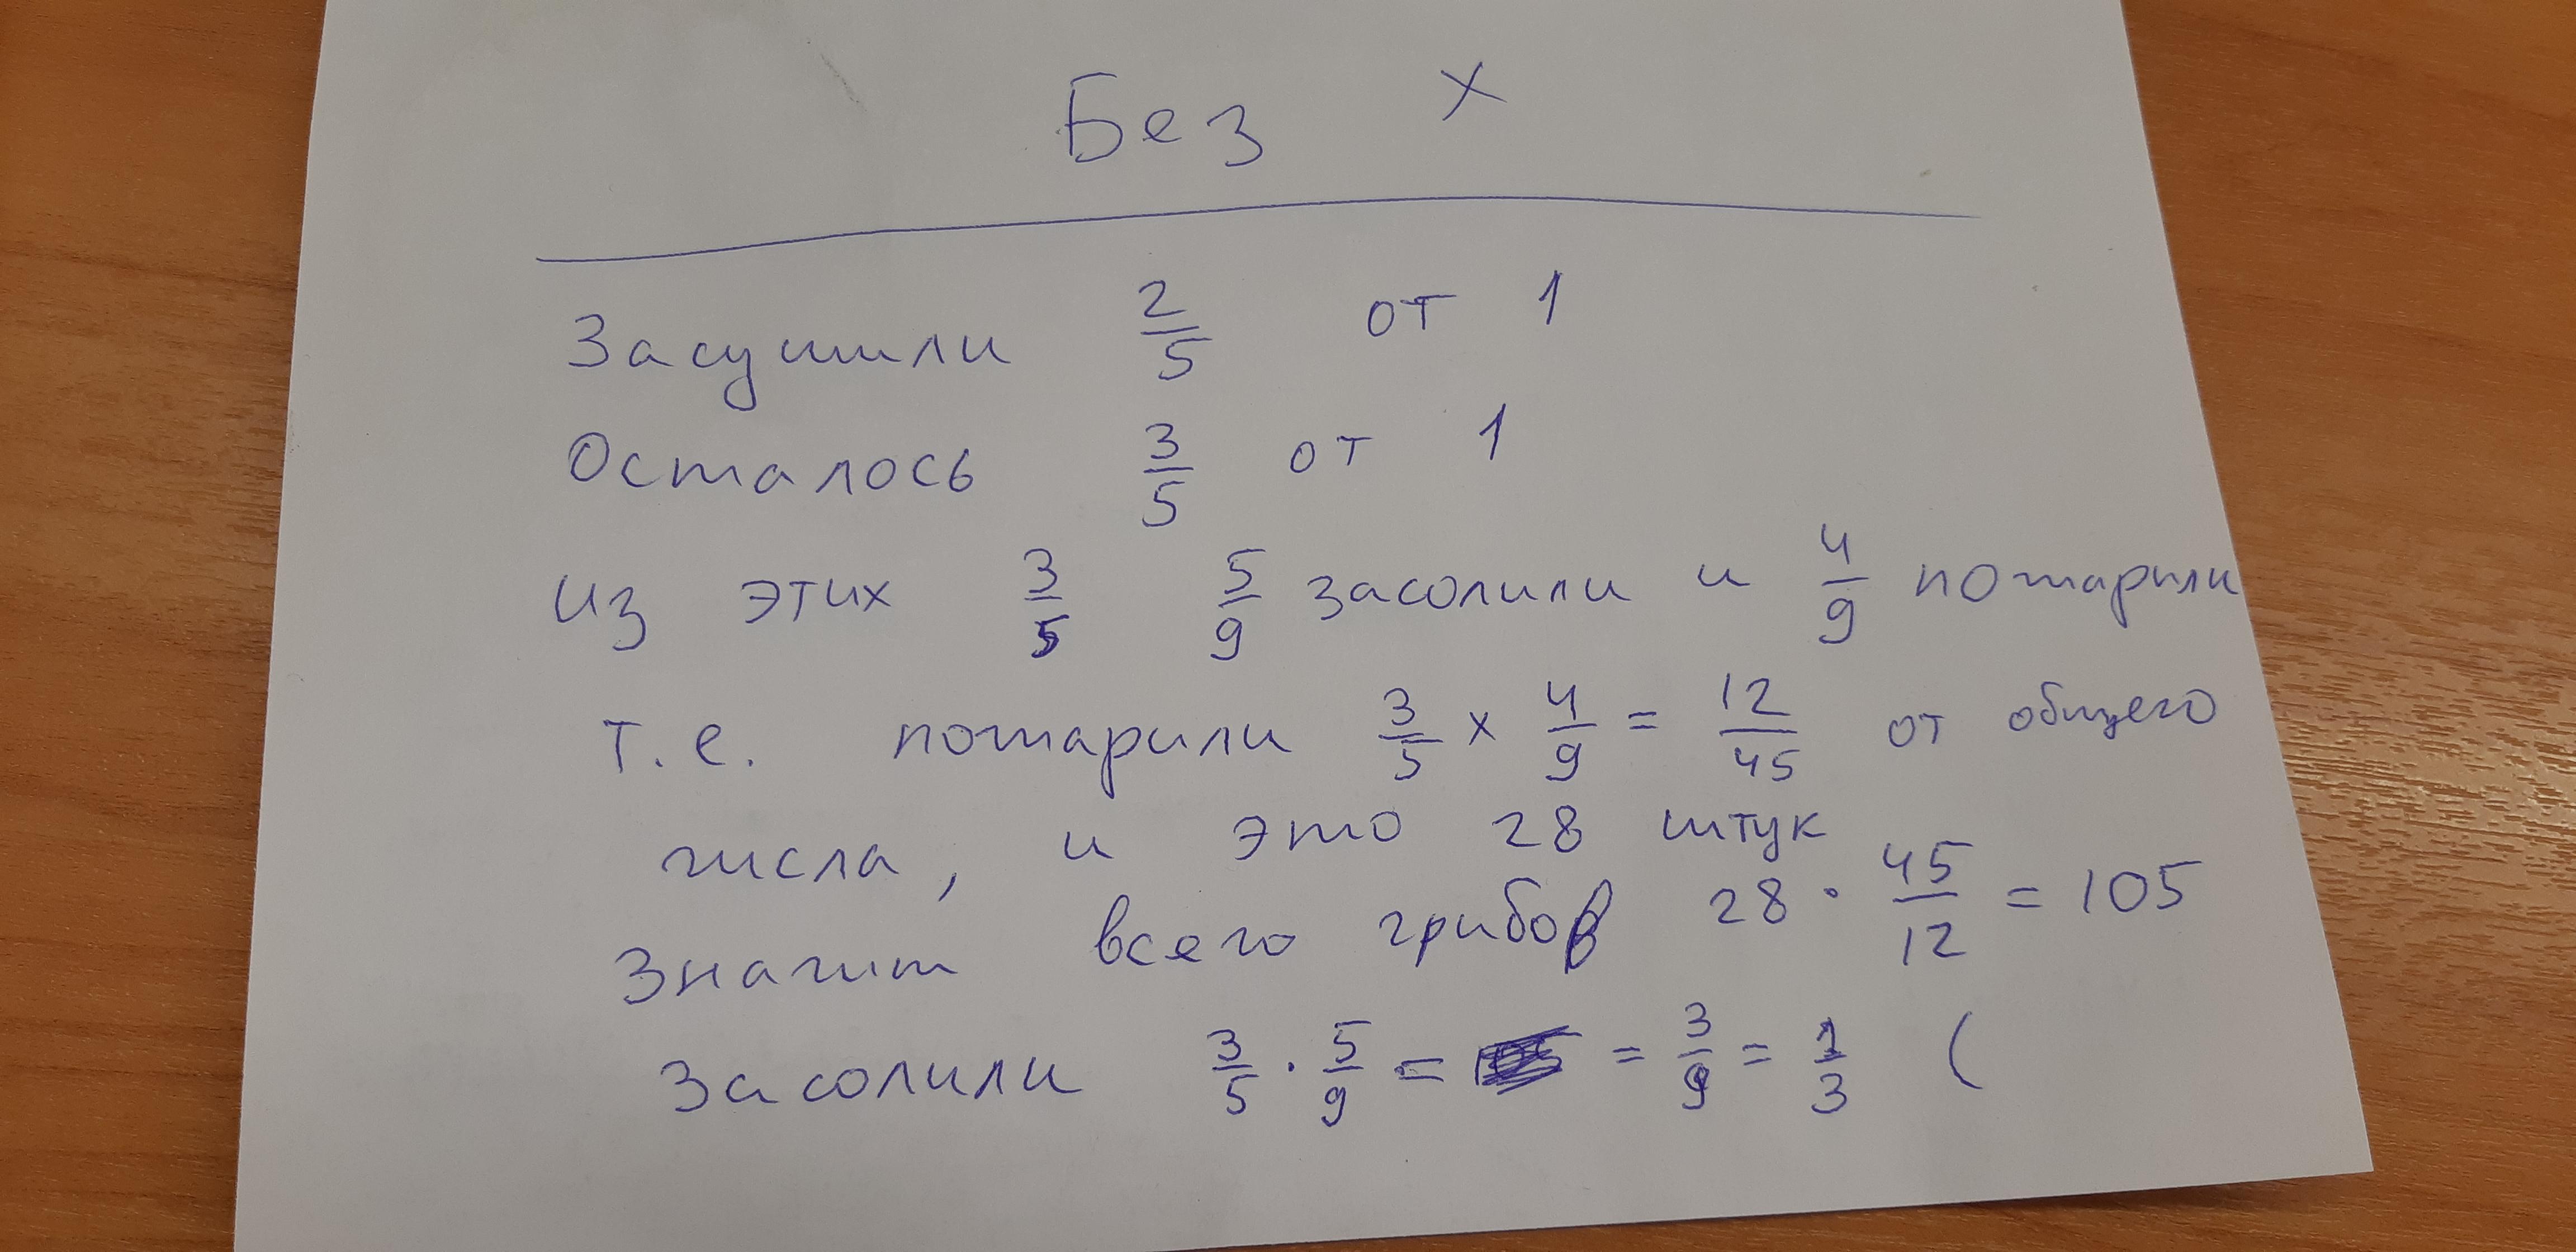 Без х
Засушили 2/5 от 1
Осталось 3/5 от 1
из этих 3/5 5/9 засолили и 4/9 пожарили
т.е. пожарили 3/5 × 4/9 = 12/45 от общего
числа, и это 28 штук
Значит всего грибов 28 · 45/12 = 105
Засолили 3/5 · 5/9 = = 3/9 = 1/3 (